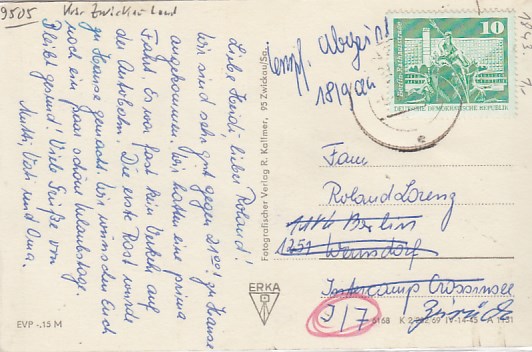 9505 Krs. Zwickau Land
Liebe Heidi - lieber Roland!
Wir sind sehr gut gegen 21⁰⁰ zu Hause
angekommen. Wir hatten eine prima
Fahrt. Es war fast kein Verkehr auf
der Autobahn. Die erste Rast wurde
zu Hause gemacht. Wir wünschen Euch
noch ein paar schöne Urlaubstage.
Bleibt gesund! Viele Grüße von
Mutti, Vati und Oma.
EVP -,15 M
Fotografischer Verlag R. Kallmer, 95 Zwickau/Sa.
ERKA
Empf. Abgereist
10
Berlin-Rathausstraße
DEUTSCHE DEMOKRATISCHE REPUBLIK
Fam.
Roland Lorenz
Berlin
1251 Wernsdorf
Intercamp Crossinsee
Zurück
J/7
A 1451